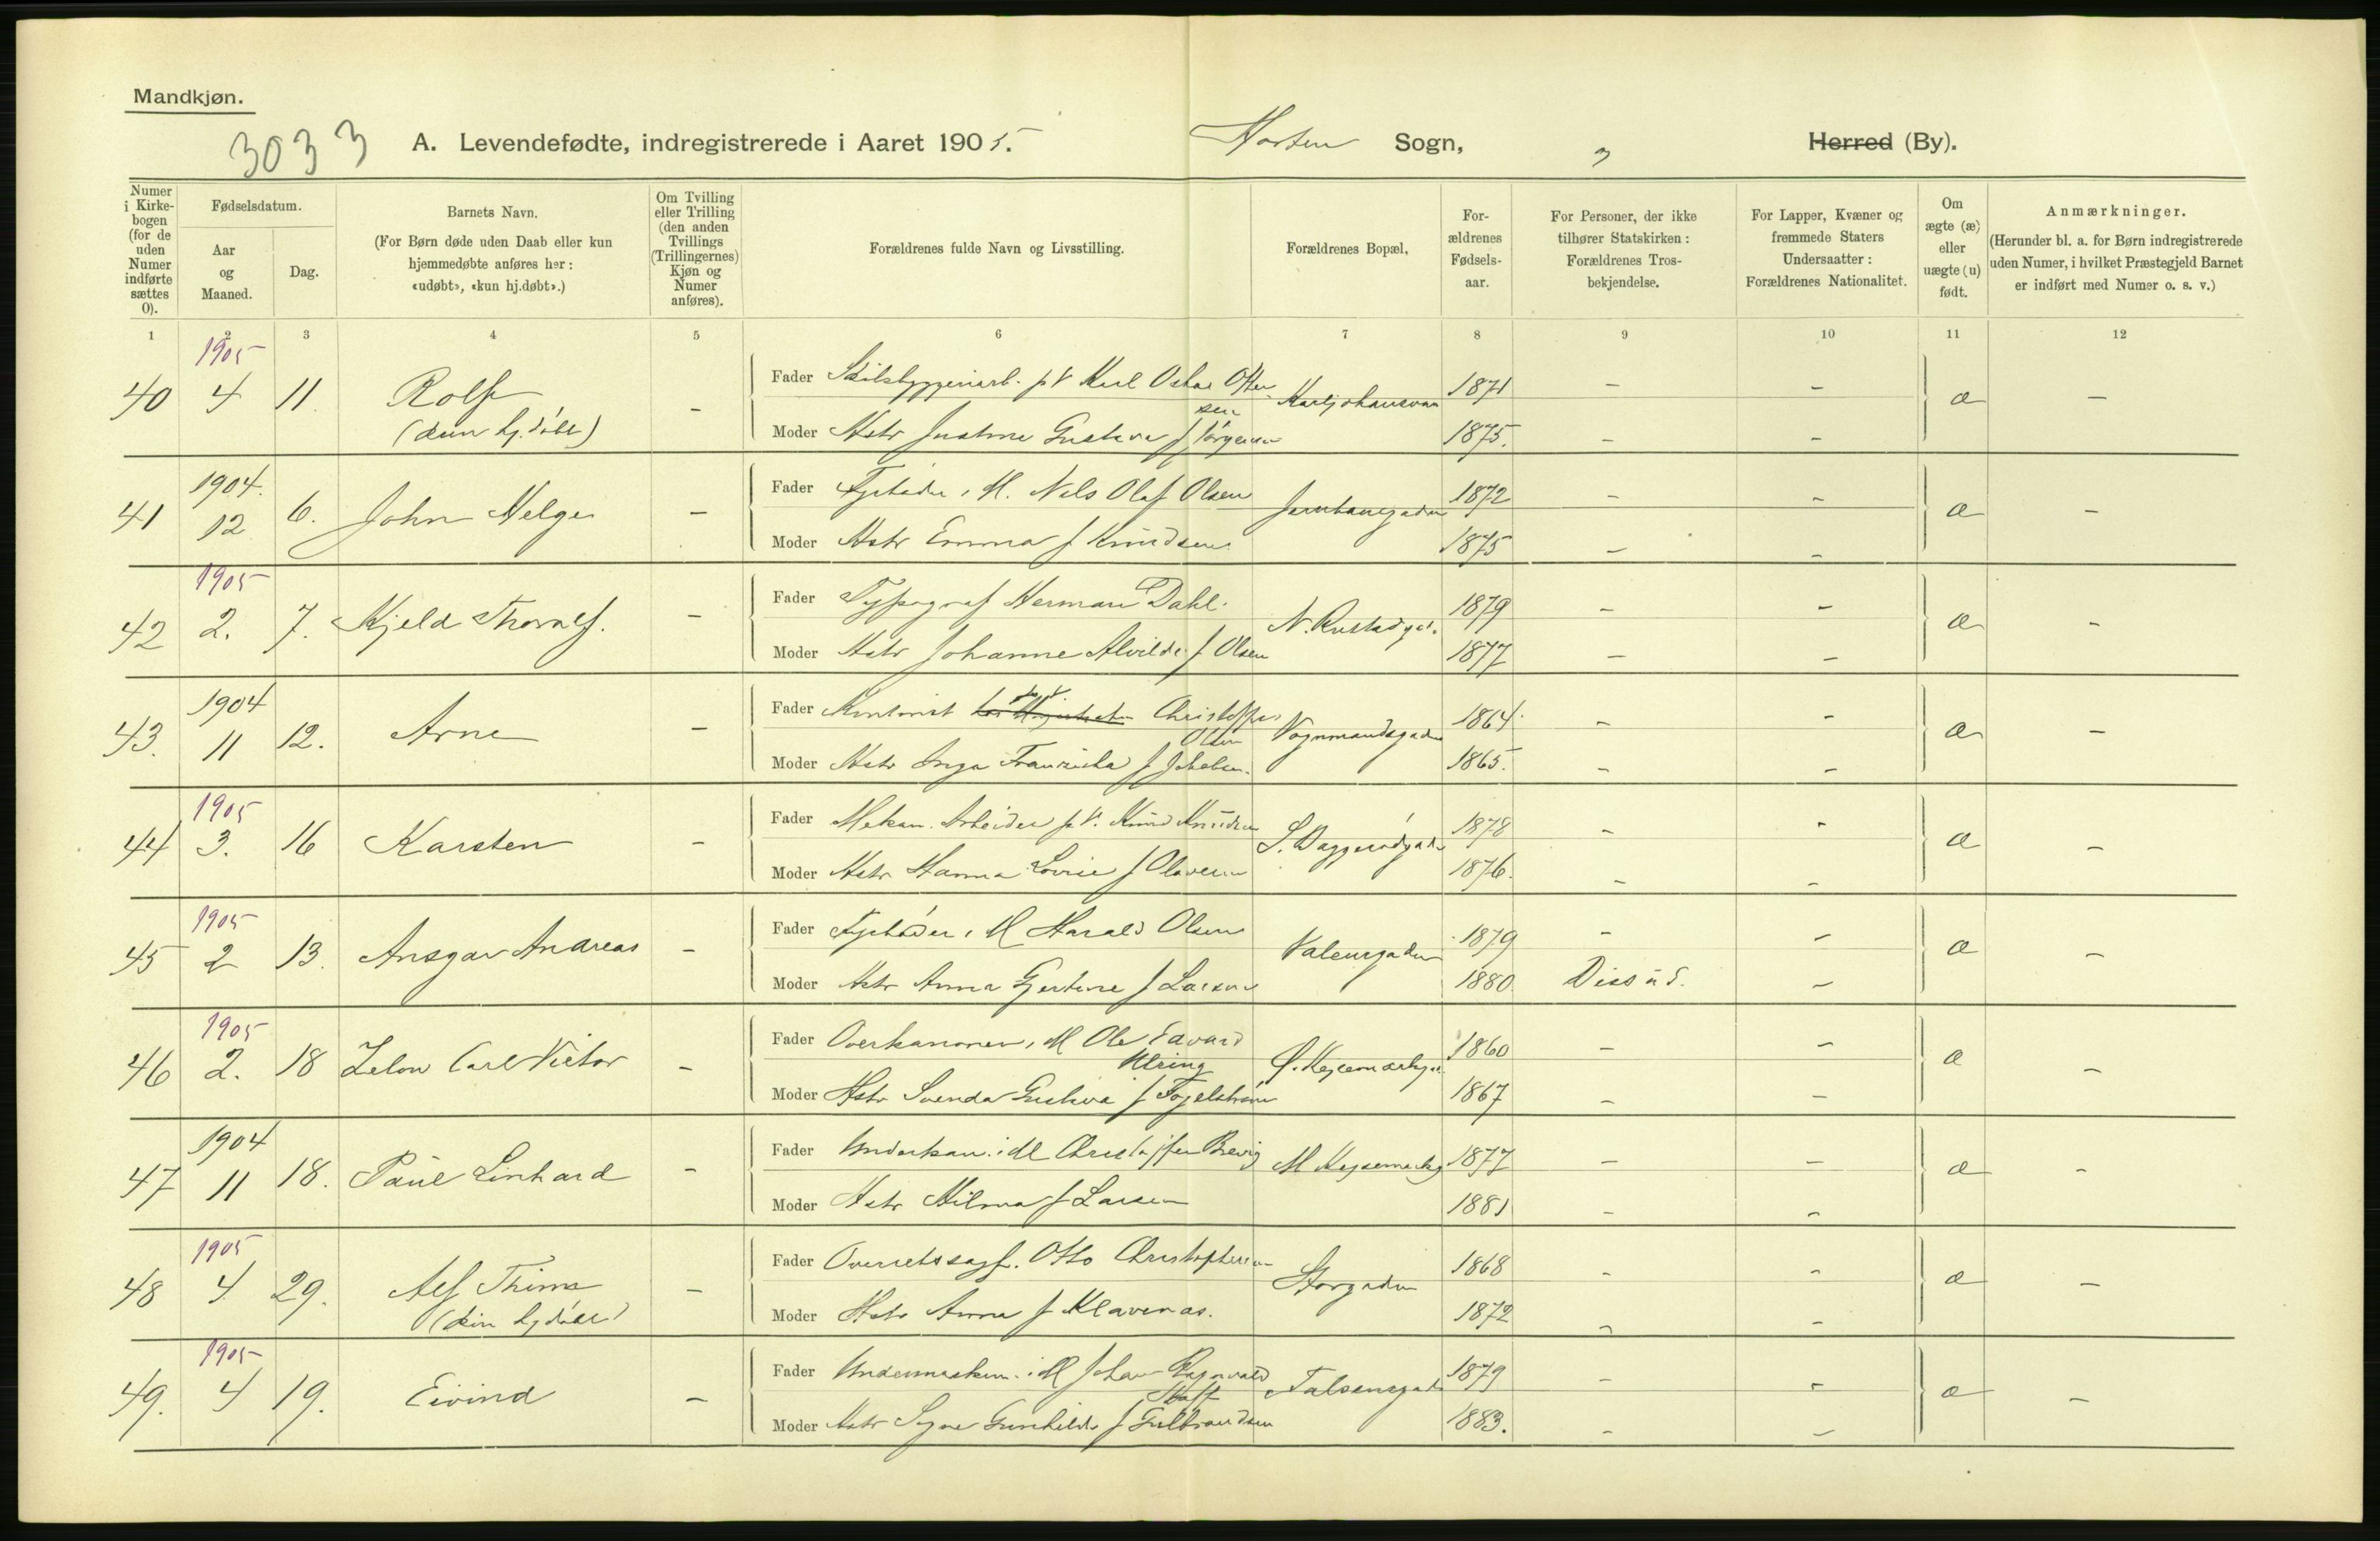 Mandkjøn.
3033
A. Levendefødte, indregistrerede i Aaret 1905.
Horten Sogn,
" Herred (By).
Numer i Kirkebogen (for de uden Numer indførte sættes 0).
Fødselsdatum.
Aar og Maaned.
Dag.
Barnets Navn.
(For Børn døde uden Daab eller kun hjemmedøbte anføres her: «udøbt», «kun hj.døbt».)
Om Tvilling eller Trilling (den anden Tvillings (Trillingernes) Kjøn og Numer anføres).
Forældrenes fulde Navn og Livsstilling.
Forældrenes Bopæl,
Forældrenes Fødselsaar.
For Personer, der ikke tilhører Statskirken: Forældrenes Trosbekjendelse.
For Lapper, Kvæner og fremmede Staters Undersaatter: Forældrenes Nationalitet.
Om ægte (æ) eller uægte (u) født.
Anmærkninger.
(Herunder bl. a. for Børn indregistrerede uden Numer, i hvilket Præstegjeld Barnet er indført med Numer o. s. v.)
1 2 3 4 5 6 7 8 9 10 11 12
1905
40 4 11. Rolf - Fader Skibsbyggeriarb. p V Karl Oskar Ottersen Karljohansvæn 1871 - - æ -
(kun hj. døbt) Moder Hstr Justine Gustava f Jörgensen 1875. - -
1904.
41 12 6. John Helge - Fader Fyrbøder i M. Nils Olaf Olsen Jernbanegaden 1872 - - æ -
Moder Hstr Emma f Knudsen 1875 - -
1905
42 2. 7. Kjeld Thoralf. - Fader Typograf Herman Dahl. N. Rustadgd. 1879 - - æ -
Moder Hstr Johanne Alvilde f Olsen 1877 - -
1904
43. 11 12. Arne - Fader Kontorist p V Christoffer Olsen Vognmandsgaden 1864. - - æ -
Moder Hstr Inga Franziska f Jakobsen. 1865. - -
1905
44 3. 16 Karsten - Fader Mekan. Arbeider p V. Knud Knudsen 1878 - - æ -
Moder Hstr Hanna Lovise f Olavesen 1876. - -
1905
45 2 13. Ansgar Andreas - Fader Fyrbøder i M Harald Olsen 1879 - - æ -
Moder Hstr Anna Gjertine f Larsen 1880. Diss ūd. -
1905
46 2. 18 Carl Victor - Fader Overkanoner i M Ole Edvard Ulring 1860 - - æ -
Moder Hstr Svenda Gustava f Fogelström 1867 - -
1904
47 11 18. Paul Linhard - Fader Underkan. i M Christoffer Brevig 1877 - - æ -
Moder Hstr Hilma f Larsen 1881 - -
1905
48 4 29. Alf Thime - Fader Overretssagf. Otto Christophersen Storgaden 1868 - - æ -
(kun hj døbt) Moder Hstr Anna f Klavenæs. 1872 - -
1905
49. 4 19. Eivind - Fader Undermaskin. i M Johan Ragnvald Falsensgade 1879 - - æ -
Moder Hstr Signe Gunhilde f Gulbrandsen 1883. - -